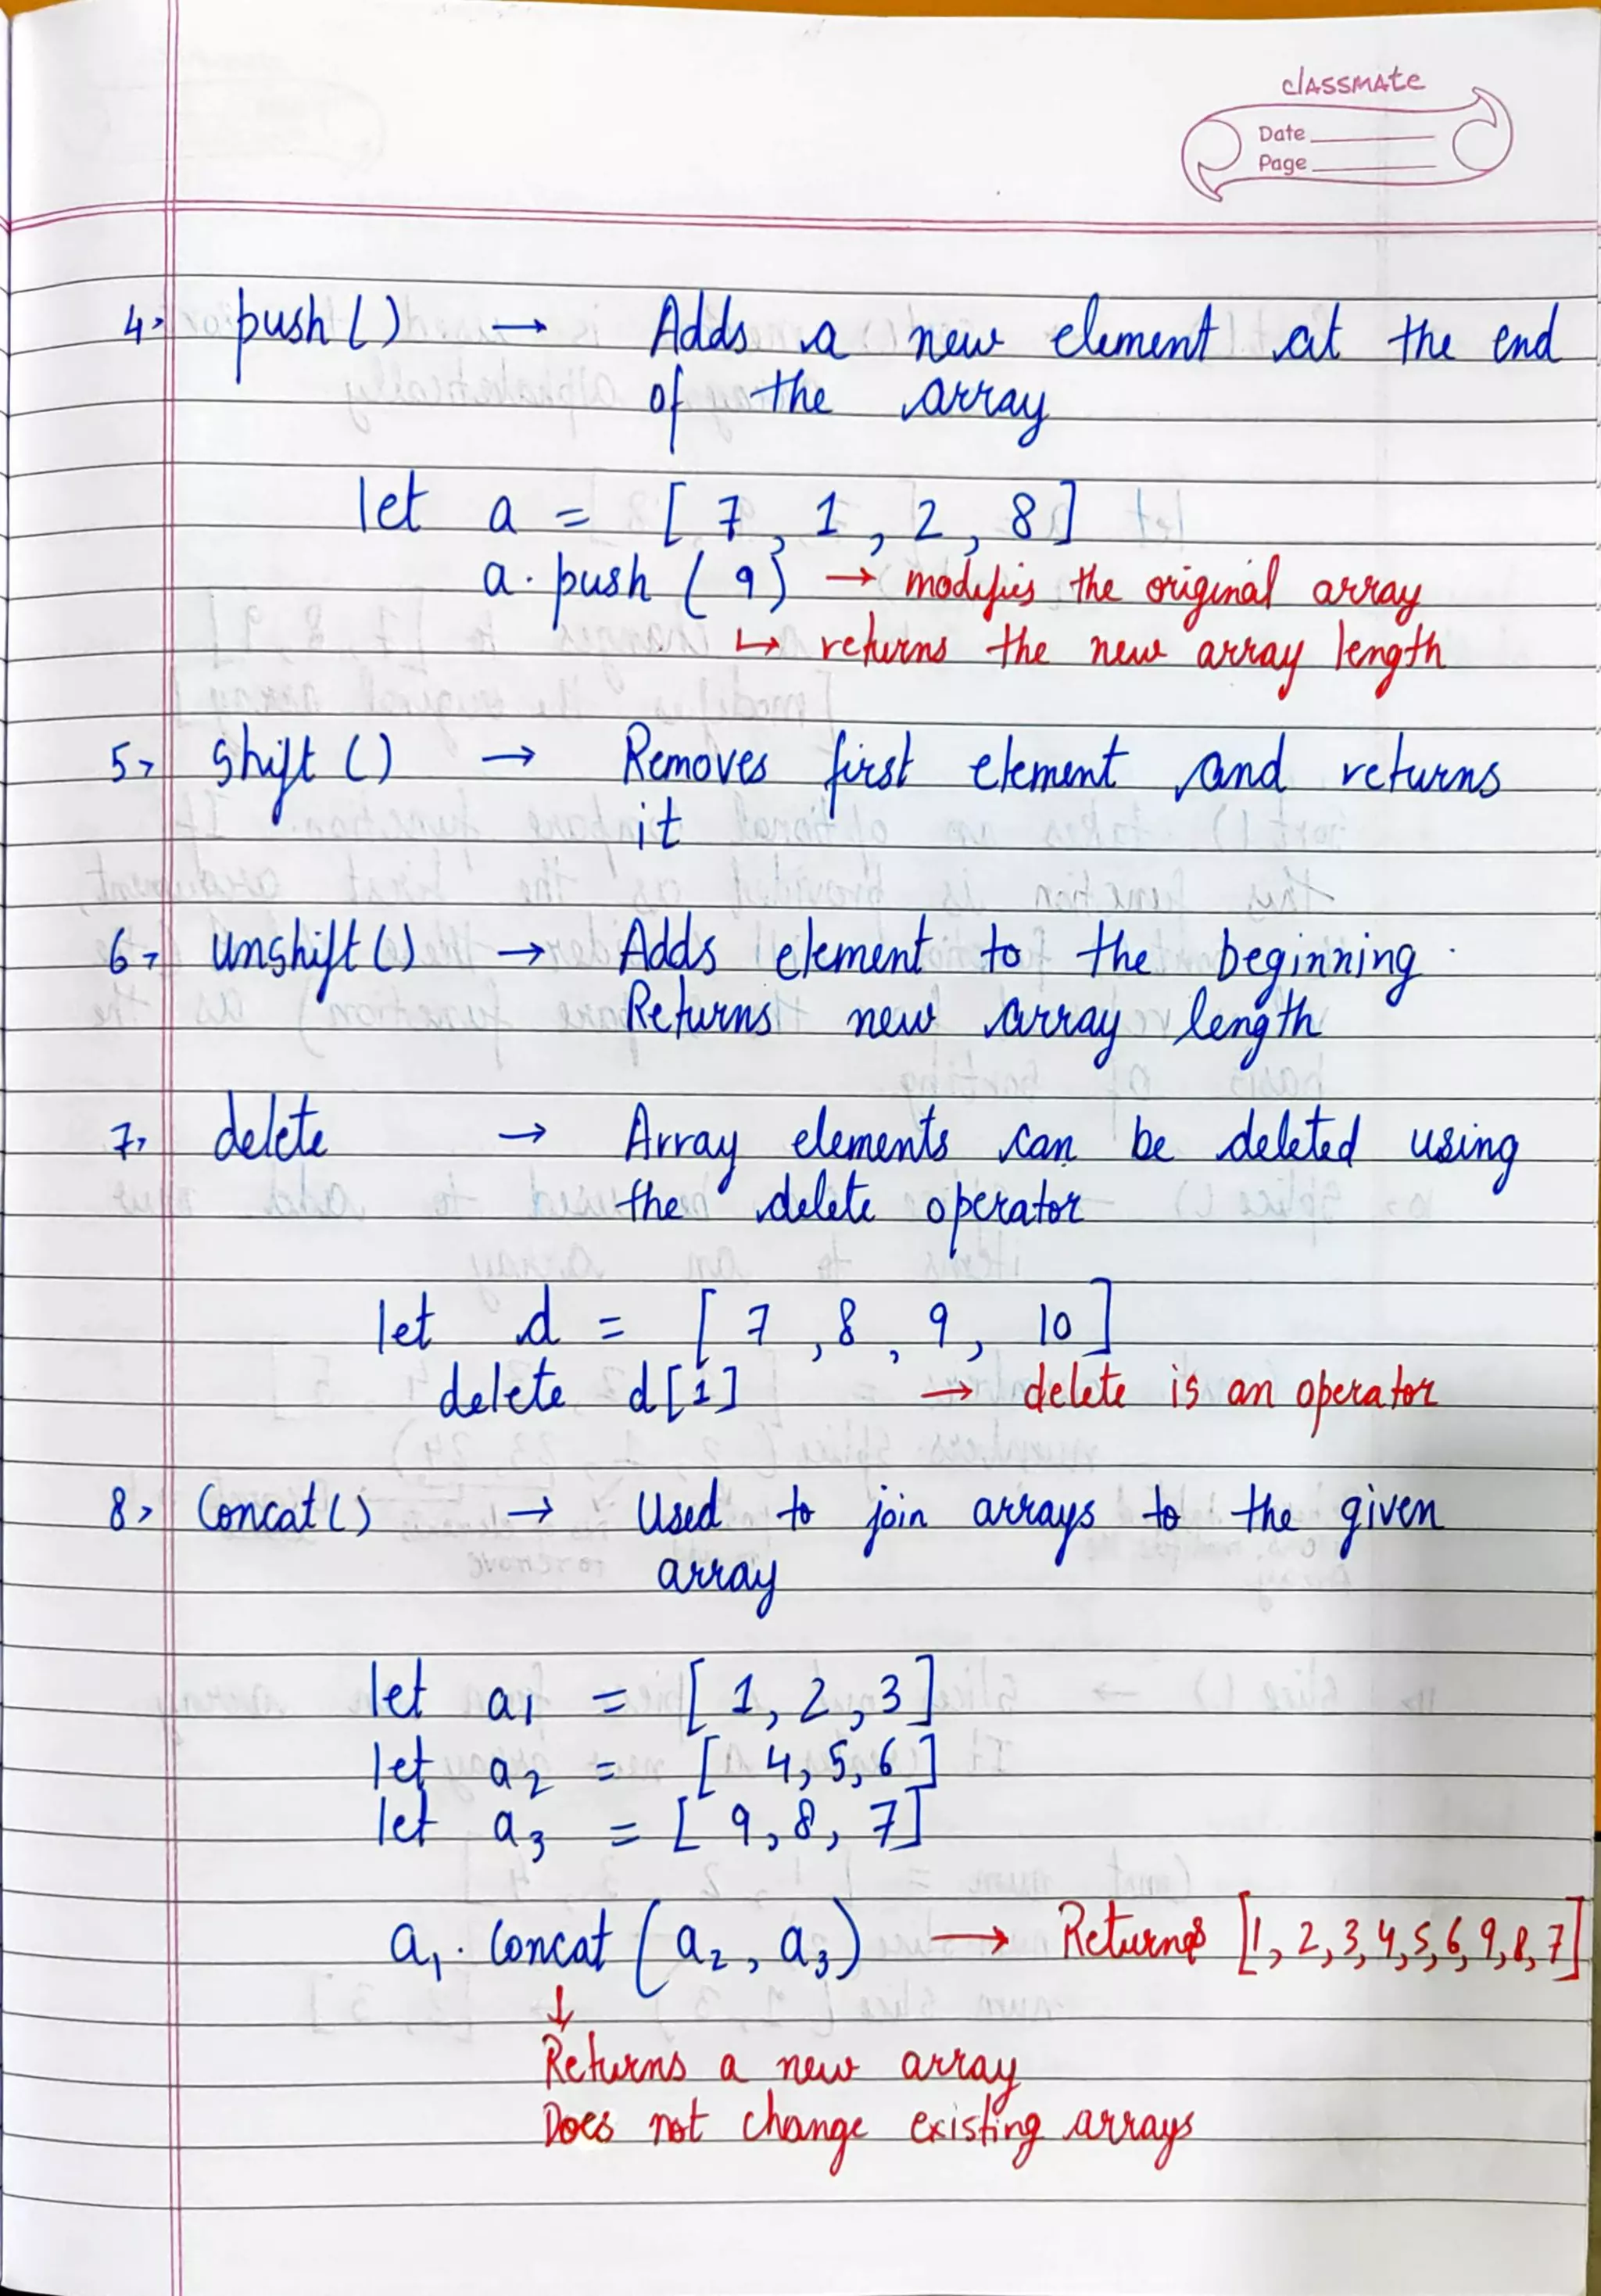 classmate
Date
Page
4, push() → Adds a new element at the end
of the array
let a = [7, 1, 2, 8]
a.push(9) → modifies the original array
↳ returns the new array length
5, shift() → Removes first element and returns
it
6, unshift() → Adds element to the beginning.
Returns new array length
7, delete → Array elements can be deleted using
the delete operator
let d = [7, 8, 9, 10]
delete d[1] → delete is an operator
8, Concat() → Used to join arrays to the given
array
let a1 = [1, 2, 3]
let a2 = [4, 5, 6]
let a3 = [9, 8, 7]
a1.concat(a2, a3) → Returns [1, 2, 3, 4, 5, 6, 9, 8, 7]
↓
Returns a new array
Does not change existing arrays